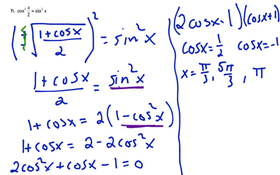 9. cos² x/2 = sin² x
(± √((1 + cosx)/2))² = sin² x
(1 + cosx)/2 = sin² x
1 + cosx = 2(1 - cos² x)
1 + cosx = 2 - 2cos² x
2cos² x + cosx - 1 = 0
(2cosx - 1)(cosx + 1)
cosx = 1/2 cosx = -1
x = π/3, 5π/3, π